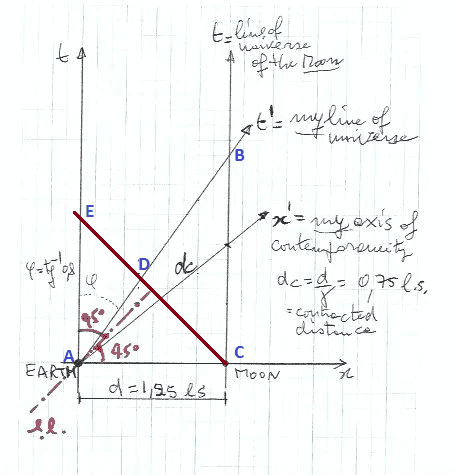 t
t=line of
universe
of the Moon
t'= my line of
universe
B
E
x'= my axis of
contemporaneity
φ=tg⁻¹0,8
φ
D
dc
dc=d/γ=0,75 l.s.
=contracted
distance
45°
45°
A
C
EARTH
MOON
x
d=1,25 ls
l.l.